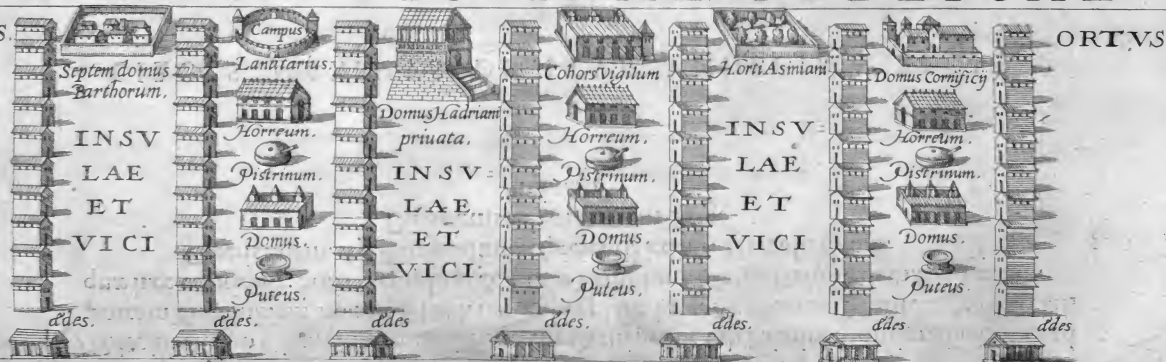 S.
ORTVS
Septem domus
Parthorum.
INSV
LAE
ET
VICI
Campus
Lanatarius.
Horreum.
Pistrinum.
Domus.
Puteus.
Domus Hadriani
priuata.
INSV=
LAE
ET
VICI.
Cohors Vigilum
Horreum.
Pistrinum.
Domus
Puteus.
Horti Asiniani
INSV=
LAE
ET
VICI
Domus Cornificij
Horreum.
Pistrinum.
Domus.
Puteus.
ædes.
ædes.
ædes
ædes.
ædes.
ædes.
ædes